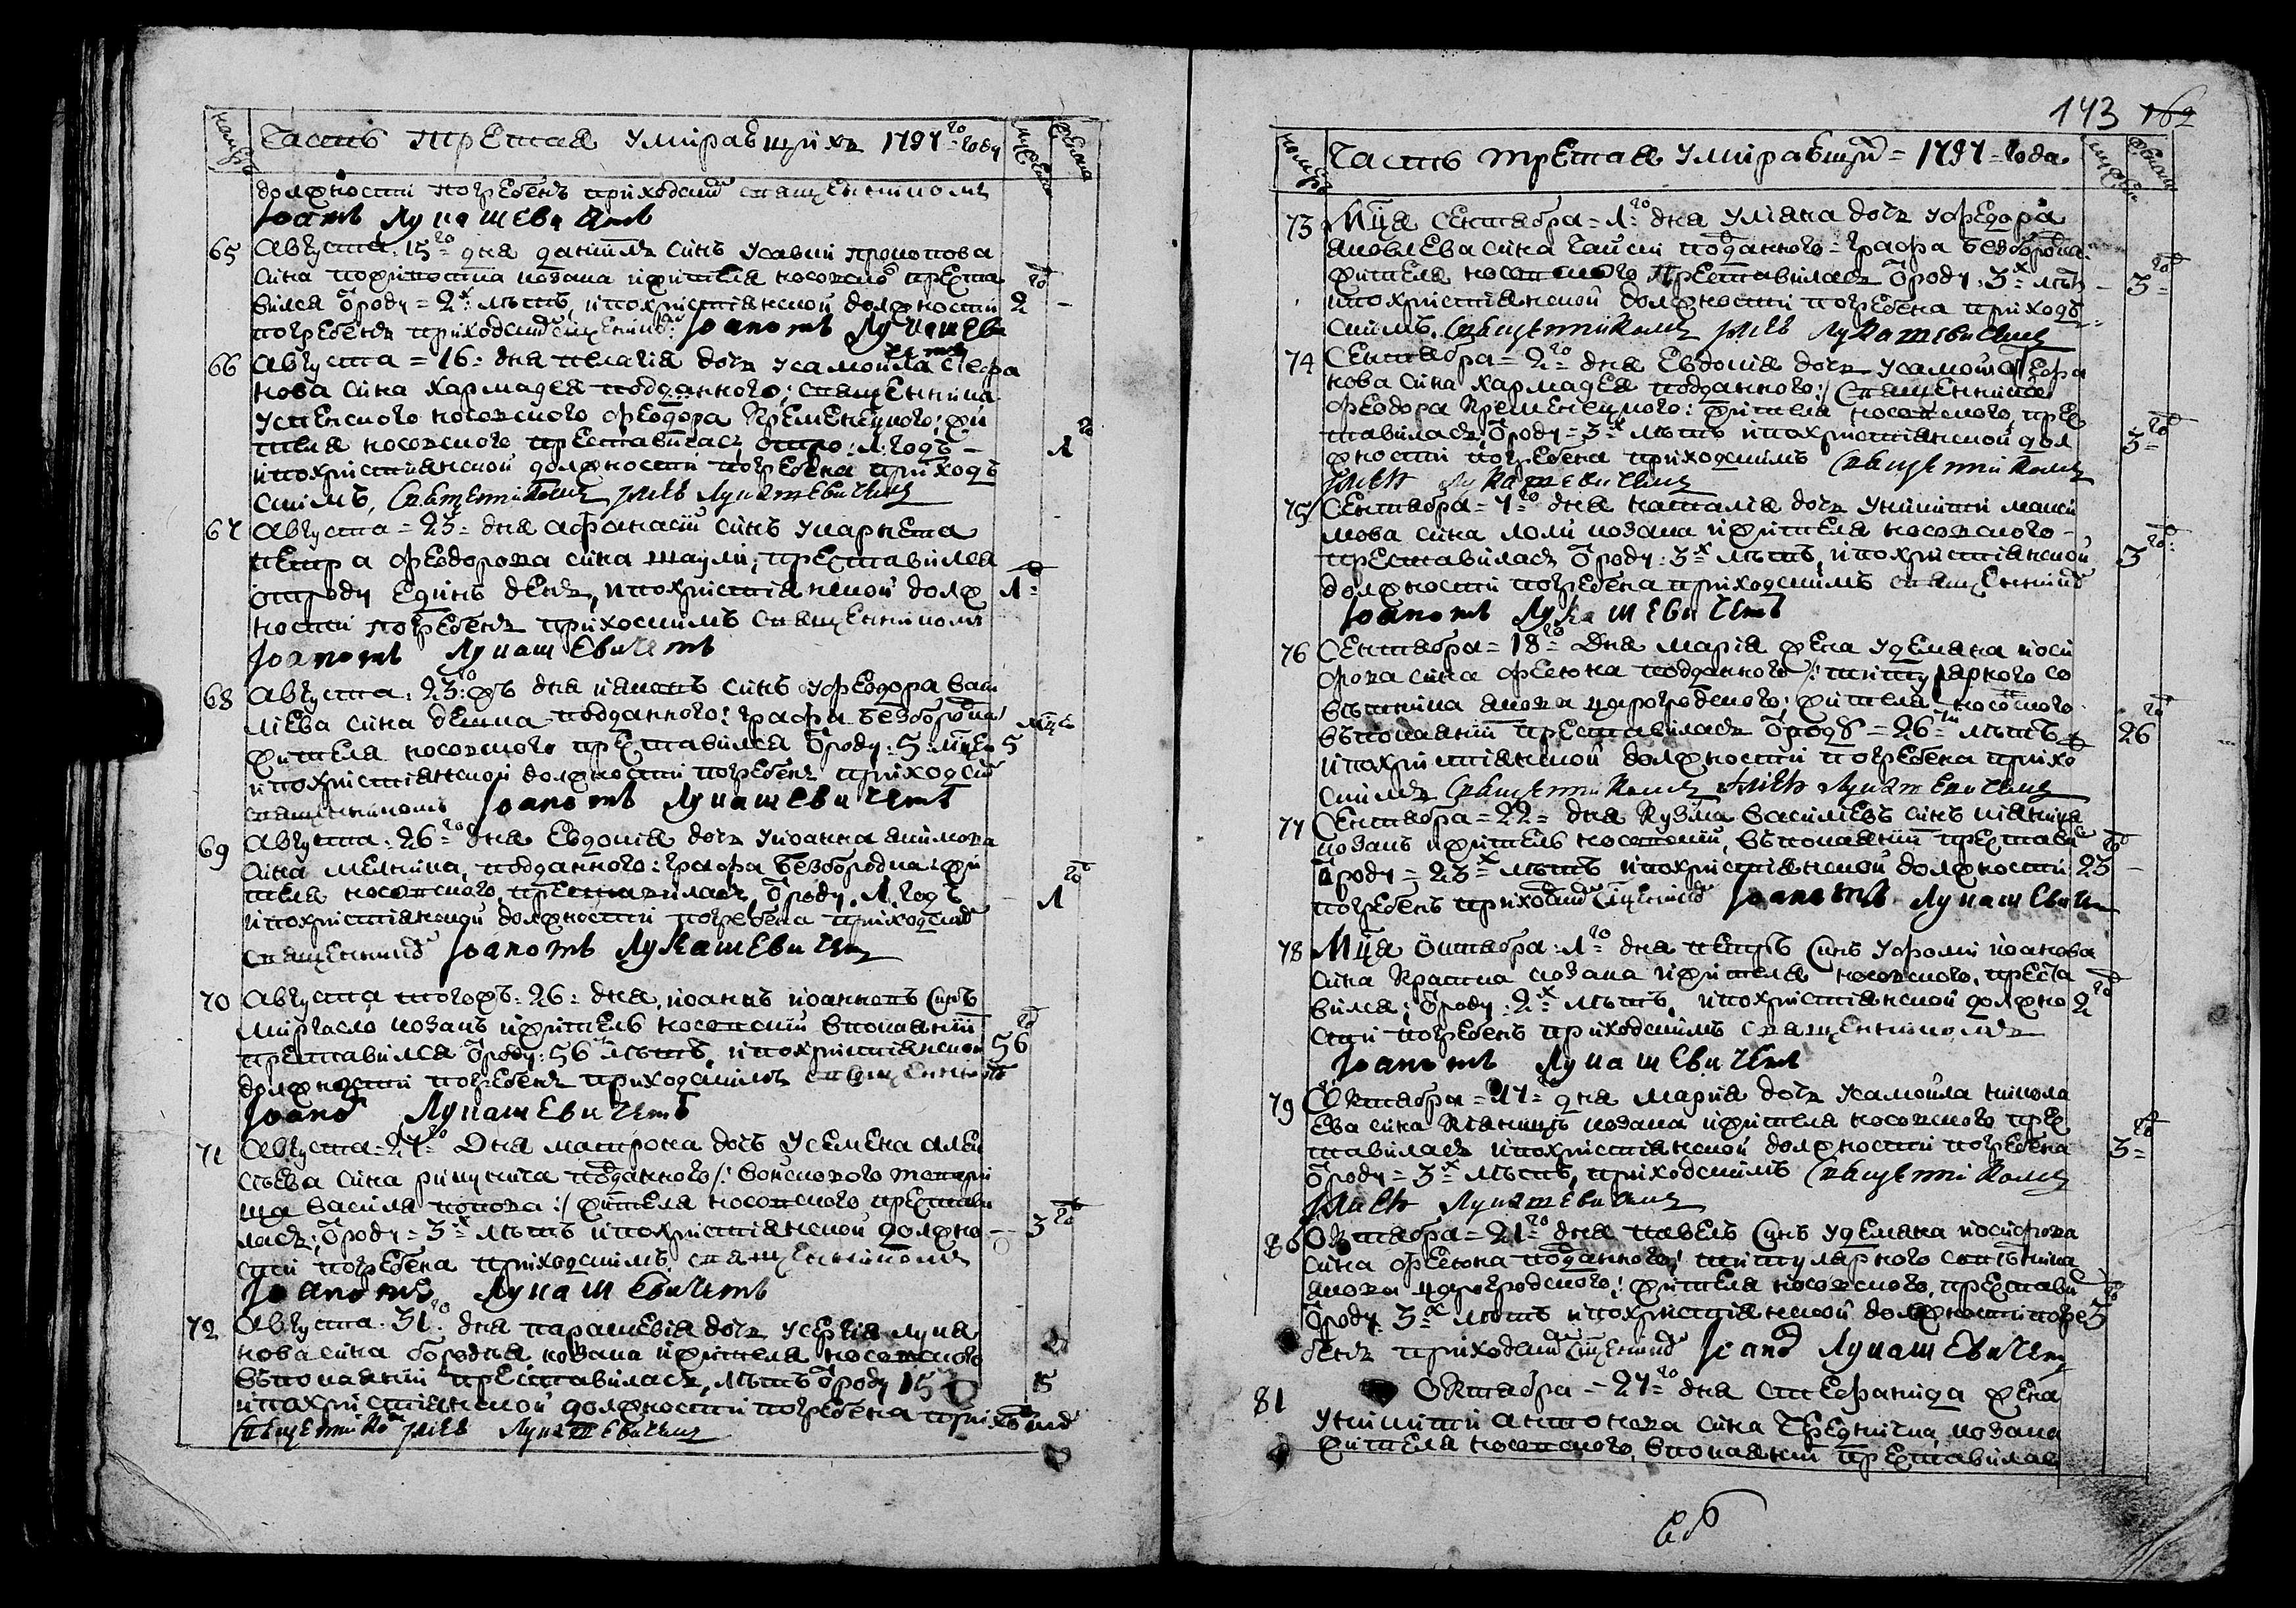 Часть третая умиравщихъ 1797 го году
должности погребенъ приходскимъ священникомъ
Іоаномъ Лукашевичемъ
65 Августа 15 го дня даніилъ синъ усавки прокопова
сина козака ижителя носовского преста
вился ѿроду = 2 х лѣтъ, ипохристіянской должности 2
погребенъ приходскимъ священникомъ Іоаномъ Лукашеви
чемъ
66 Августа = 16 дня пелагія дочь усамойла стефа
нова сина хармадея подданного: священника
успенского носовского феодора кременецкого: жи
теля носовского преставилась отро: 1 годъ - 1
ипохристиянской должности погребена приходъ
скимъ, священникомъ Іоаномъ Лукашевичемъ
67 Августа = 23 дня афанасій синъ
петра феодорова сина шаули, преставился
ѿроду единъ день, ипохристіянской долж 1
ности погребенъ приходскимъ священникомъ
Іоаномъ Лукашевичемъ
68 Августа 23 го жъ дня іяковъ синъ уфеодора васи
лієва сина подданного: графа безбородка: мцей
жителя носовского преставился ѿроду: 5 мцей 5
ипохристіянской должности погребенъ приходски
священникомъ Іоаномъ Лукашевичемъ
69 Августа 26 го дня Евдокія дочь уіоанна
сина мелника, подданного: графа безбородка: жи
теля носовского, преставилась, ѿроду 1 годъ - 1
ипохристіянской должности погребена приходским
священникомъ Іоаномъ Лукашевичемъ
70 Августа тогожъ 26 дня, іоаннъ іоанновъ синъ
козакъ ижитель носовский впокаянии
преставился ѿроду: 56 лѣтъ, ипохристіянской 56
должности погребенъ приходскимъ священникомъ
Іоаномъ Лукашевичемъ
71 Августа 27 го Дня матрона дочь усемена алек
сѣева сина подданного /: войскового товари
ща василя попова :/ жителя носовского, престави
лась, ѿроду = 3 х лѣтъ ипохристіянской должно - 3
сти погребена приходскимъ, священникомъ
Іоаномъ Лукашевичемъ
72 Августа 31 го дня параскевія дочь усергія лукя
нова сина козака ижителя носовского
впокаянии преставилась, лѣтъ ѿроду 15 15
ипохристіянской должности погребена приходскимъ
священникомъ Іоаномъ Лукашевичемъ
143 162
Часть третая умиравщихъ = 1797 = года
73 Мца Сентября = 1 го дня уліяна дочь уфедора
яковлева сина подданного = графа безбородка:
жителя носовского преставилась ѿроду: 3 х лѣтъ - 3
ипохристіянской должности погребена приходъ
скимъ, священникомъ Іоаномъ Лукашевичемъ
74 Сентября = 2 го дня Евдокія дочь усамойла стефа
нова сина хармадея подданного: / священника
феодора кременецкого: жителя носовского, прес
тавилась, ѿроду = 3 х лѣтъ ипохристіянской дол 3
жности погребена приходскимъ священникомъ
Іоаномъ Лукашевичемъ
75 Сентября = 7 го дня наталія дочь уникити макси
мова сина козака ижителя носовского -
преставилась ѿроду: 3 х лѣтъ, ипохристіянской 3
должности погребена приходскимъ священникомъ
Іоаномъ Лукашевичемъ
76 Сентября = 18 го Дня марія жена удемяна іоси
фова сина подданного /: титулярного со
вѣтника якова жителя носовского
впокаянии преставилась ѿроду = 26 лѣтъ 26
ипохристіянской должности погребена прихо
скимъ священникомъ Іоаномъ Лукашевичемъ
77 Сентября = 22 = дня кузма василіевъ синъ
козакъ ижитель носовский, впокаянии преставил
ѿроду = 23 х лѣтъ ипохристіянской должности 23
погребенъ приходскимъ священникомъ Іоаномъ Лукашевичем
78 Мца Октября 1 го дня петръ синъ іоанова
сина козака ижителя носовского, преста
вился, ѿроду: 2 х лѣтъ, ипохристіянской должно 2
сти погребенъ приходскимъ священникомъ
Іоаномъ Лукашевичемъ
79 Октября = 17 го дня марія дочь усамойла никола
ева сина козака ижителя носовского прес
тавилась ипохристіянской должности погребена 3
ѿроду = 3 х лѣтъ, приходскимъ священникомъ
Іоаномъ Лукашевичемъ
80 Октября = 21 го дня павелъ синъ удемяна іосифова
сина подданного: титулярного совѣтника
якова жителя носовского, престави
ѿроду 3 х лѣтъ ипохристіянской должности погре 3
бенъ приходскимъ священникомъ Іоаномъ Лукашевичем
81 Октября = 27 го дня стефанида жена
уникити антонова сина козака
жителя носовского, впокаянии преставилас